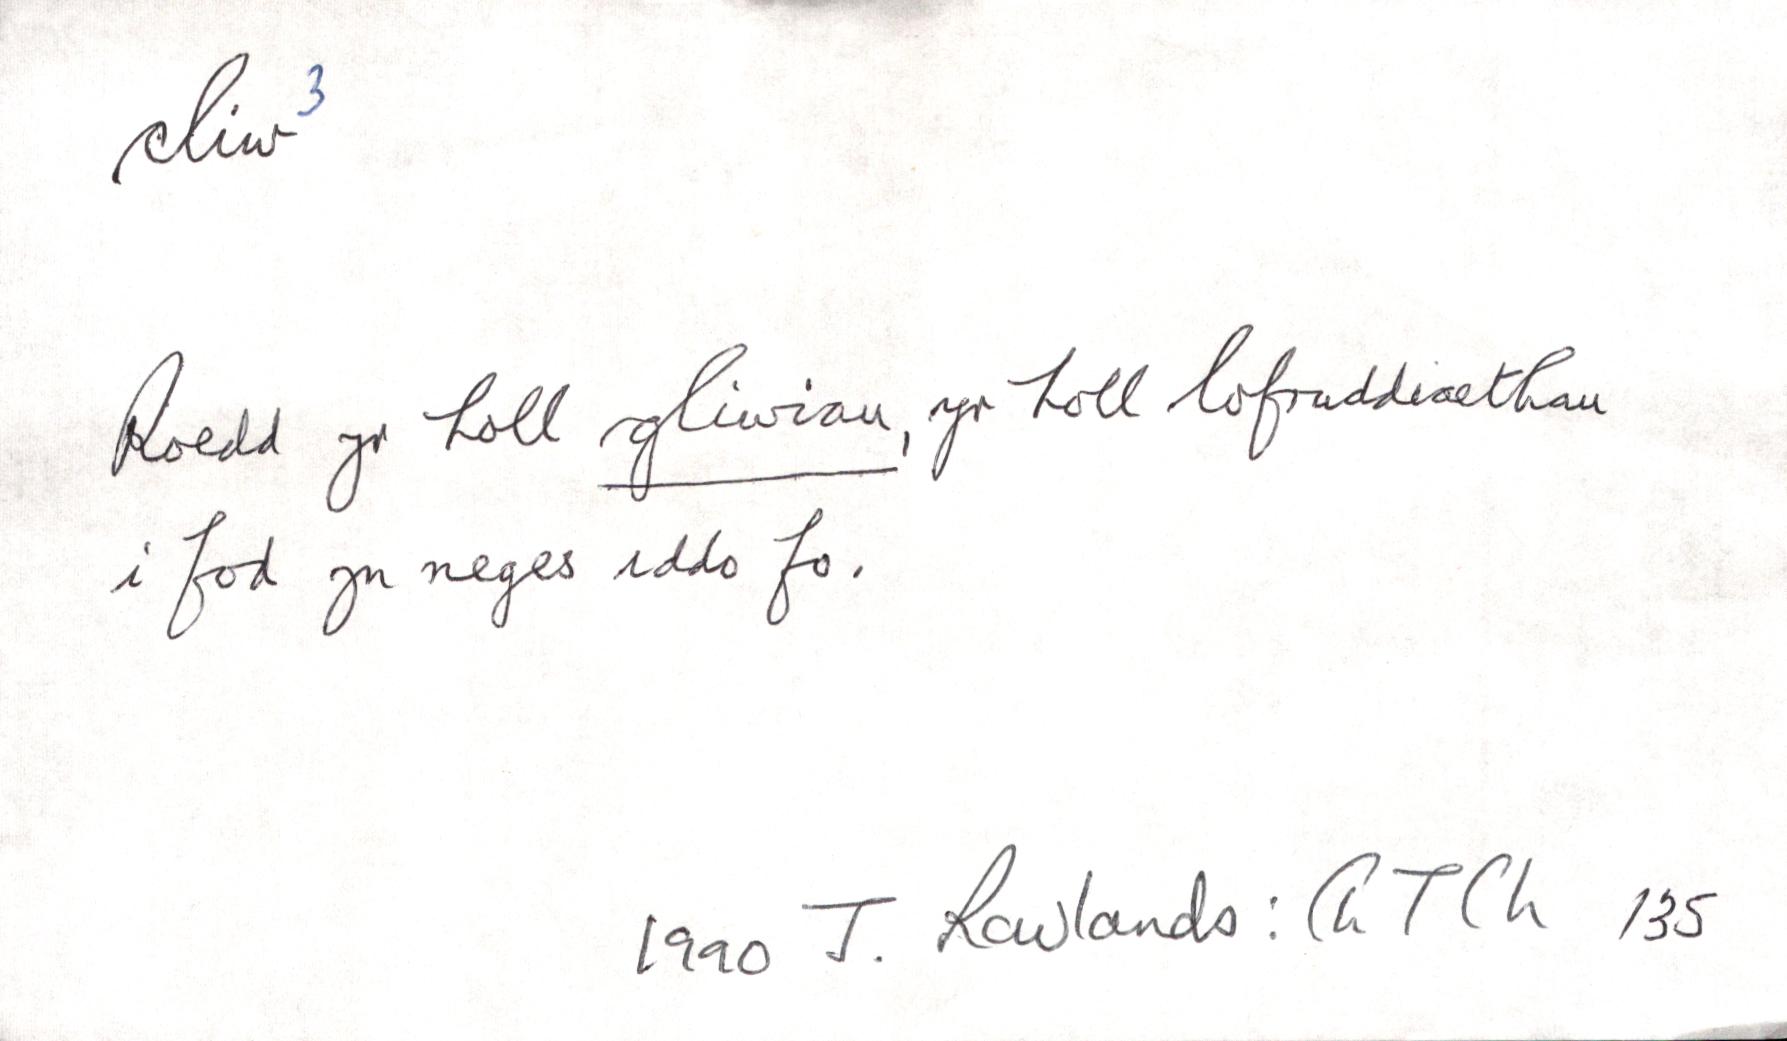 cliw³
Roedd yr holl gliwiau, yr holl lofruddiaethau
i fod yn neges iddo fo.
1990 J. Rowlands: ChTCh 135